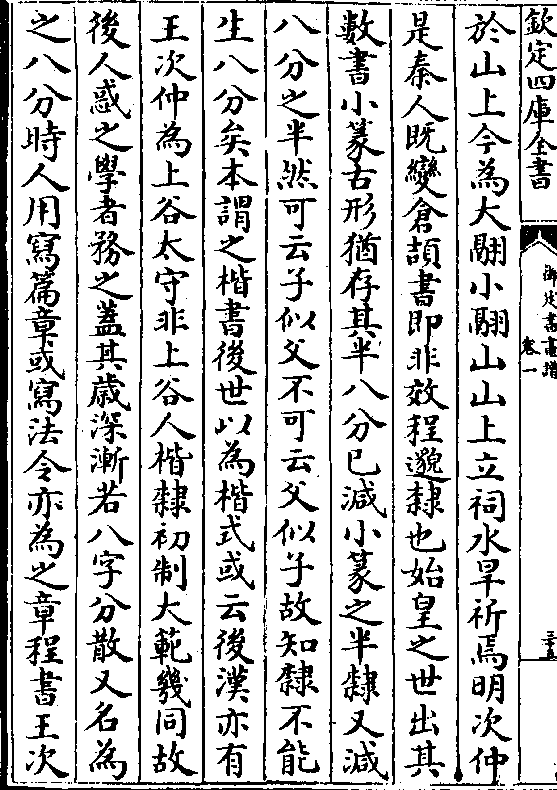 欽定四庫全書
御定書畫譜
卷一
三五
於山上今為大翮小翮山山上立祠水旱祈焉明次仲
是秦人既變倉頡書即非效程邈隸也始皇之世出其
數書小篆古形猶存其半八分已減小篆之半隸又減
八分之半然可云子似父不可云父似子故知隸不能
生八分矣本謂之楷書後世以為楷式或云後漢亦有
王次仲為上谷太守非上谷人楷隸初制大範幾同故
後人惑之學者務之蓋其歲深漸若八字分散又名為
之八分時人用寫篇章或寫法令亦為之章程書王次